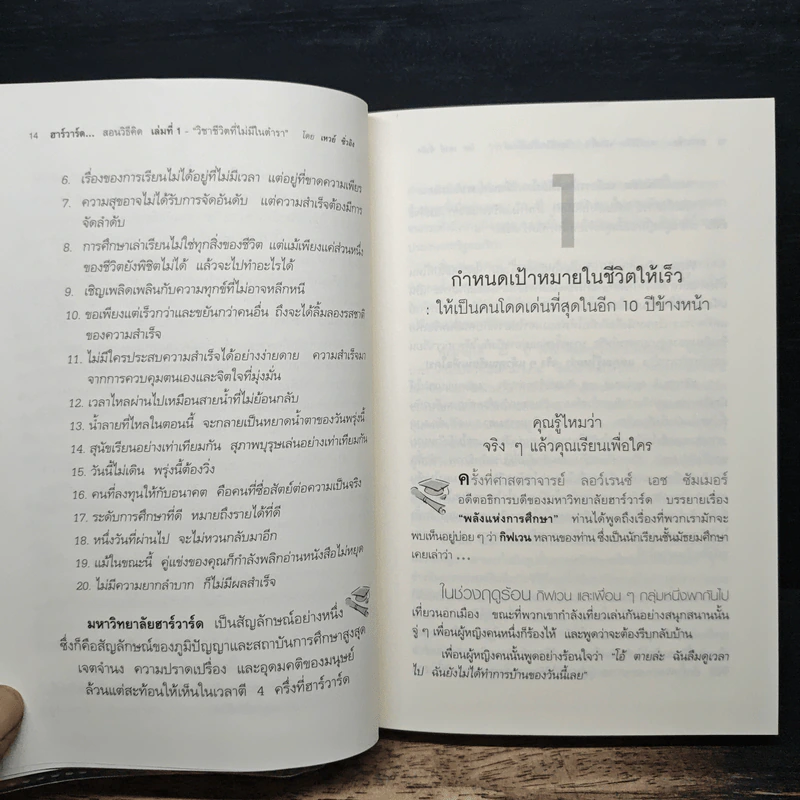 14 ฮาร์วาร์ด... สอนวิธีคิด เล่มที่ 1 - "วิชาชีวิตที่ไม่มีในตำรา" โดย เหวย์ ซิ่วอิง
6. เรื่องของการเรียนไม่ได้อยู่ที่ไม่มีเวลา แต่อยู่ที่ขาดความเพียร
7. ความสุขอาจไม่ได้รับการจัดอันดับ แต่ความสำเร็จต้องมีการ
จัดลำดับ
8. การศึกษาเล่าเรียนไม่ใช่ทุกสิ่งของชีวิต แต่แม้เพียงแค่ส่วนหนึ่ง
ของชีวิตยังพิชิตไม่ได้ แล้วจะไปทำอะไรได้
9. เชิญเพลิดเพลินกับความทุกข์ที่ไม่อาจหลีกหนี
10. ขอเพียงแต่เร็วกว่าและขยันกว่าคนอื่น ถึงจะได้ลิ้มลองรสชาติ
ของความสำเร็จ
11. ไม่มีใครประสบความสำเร็จได้อย่างง่ายดาย ความสำเร็จมา
จากการควบคุมตนเองและจิตใจที่มุ่งมั่น
12. เวลาไหลผ่านไปเหมือนสายน้ำที่ไม่ย้อนกลับ
13. น้ำลายที่ไหลในตอนนี้ จะกลายเป็นหยาดน้ำตาของวันพรุ่งนี้
14. สุนัขเรียนอย่างเท่าเทียมกัน สุภาพบุรุษเล่นอย่างเท่าเทียมกัน
15. วันนี้ไม่เดิน พรุ่งนี้ต้องวิ่ง
16. คนที่ลงทุนให้กับอนาคต คือคนที่ซื่อสัตย์ต่อความเป็นจริง
17. ระดับการศึกษาที่ดี หมายถึงรายได้ที่ดี
18. หนึ่งวันที่ผ่านไป จะไม่หวนกลับมาอีก
19. แม้ในขณะนี้ คู่แข่งของคุณก็กำลังพลิกอ่านหนังสือไม่หยุด
20. ไม่มีความยากลำบาก ก็ไม่มีผลสำเร็จ
มหาวิทยาลัยฮาร์วาร์ด เป็นสัญลักษณ์อย่างหนึ่ง
ซึ่งก็คือสัญลักษณ์ของภูมิปัญญาและสถาบันการศึกษาสูงสุด
เจตจำนง ความปราดเปรื่อง และอุดมคติของมนุษย์
ล้วนแต่สะท้อนให้เห็นในเวลาตี 4 ครึ่งที่ฮาร์วาร์ด
1
กำหนดเป้าหมายในชีวิตให้เร็ว
: ให้เป็นคนโดดเด่นที่สุดในอีก 10 ปีข้างหน้า
คุณรู้ไหมว่า
จริง ๆ แล้วคุณเรียนเพื่อใคร
ครั้งที่ศาสตราจารย์ ลอว์เรนซ์ เอช ซัมเมอร์
อดีตอธิการบดีของมหาวิทยาลัยฮาร์วาร์ด บรรยายเรื่อง
"พลังแห่งการศึกษา" ท่านได้พูดถึงเรื่องที่พวกเรามักจะ
พบเห็นอยู่บ่อย ๆ ว่า กิฟเวน หลานของท่าน ซึ่งเป็นนักเรียนชั้นมัธยมศึกษา
เคยเล่าว่า ...
ในช่วงฤดูร้อน กิฟเวน และเพื่อน ๆ กลุ่มหนึ่งพากันไป
เที่ยวนอกเมือง ขณะที่พวกเขากำลังเที่ยวเล่นกันอย่างสนุกสนานนั้น
จู่ ๆ เพื่อนผู้หญิงคนหนึ่งก็ร้องไห้ และพูดว่าจะต้องรีบกลับบ้าน
เพื่อนผู้หญิงคนนั้นพูดอย่างร้อนใจว่า "โอ้ ตายล่ะ ฉันลืมดูเวลา
ไป ฉันยังไม่ได้ทำการบ้านของวันนี้เลย"